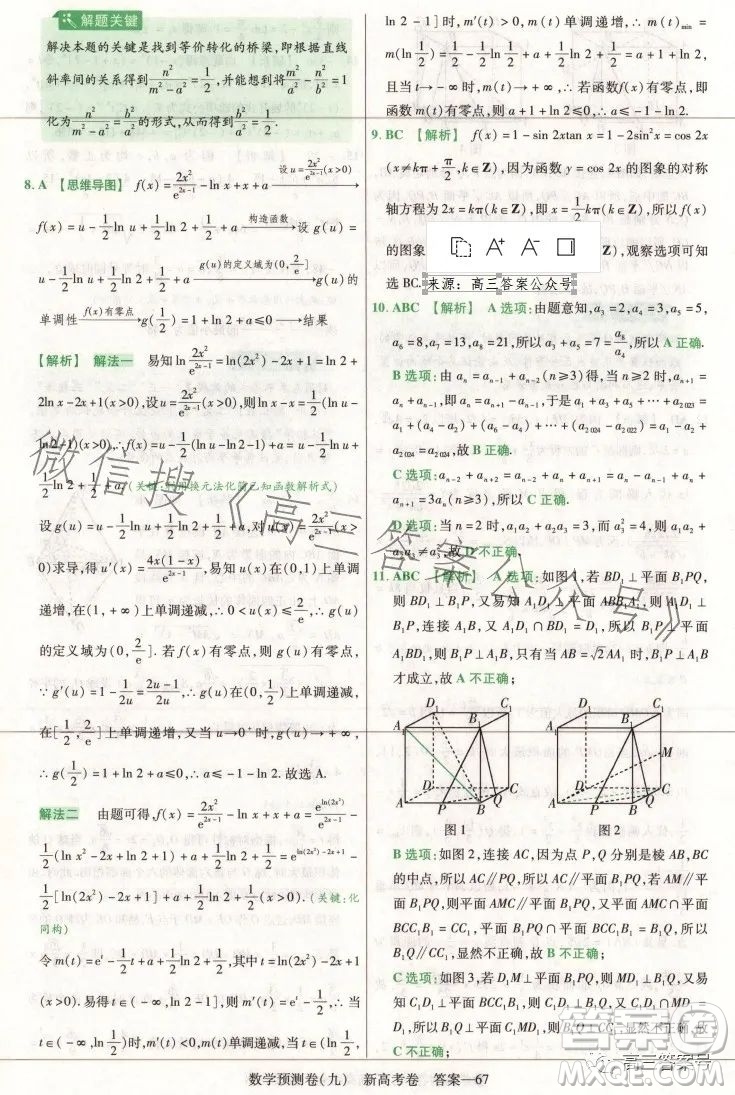 解题关键
解决本题的关键是找到等价转化的桥梁,即根据直线
斜率间的关系得到n²/(m²-a²)=1/2,并能想到将m²/a²-n²/b²=1
化为n²/(m²-a²)=b²/a²的形式,从而得到b²/a²=1/2.
8. A 【思维导图】 f(x)=2x²/e^(2x-1)-ln x+x+a 设u=2x²/e^(2x-1)(x>0)
f(x)=u-1/2ln u+1/2ln 2+1/2+a 构造函数 设g(u)=
u-1/2ln u+1/2ln 2+1/2+a g(u)的定义域为(0,2/e] g(u)的
单调性 f(x)有零点 g(1/2)=1+ln 2+a≤0→结果
【解析】 解法一 易知ln 2x²/e^(2x-1)=ln(2x²)-2x+1=ln 2+
2ln x-2x+1(x>0),设u=2x²/e^(2x-1)(x>0),则ln x-x=1/2(ln u-
ln 2-1)(x>0),∴f(x)=u-1/2(ln u-ln 2-1)+a=u-1/2ln u+
1/2ln 2+1/2+a.(关键:利用换元法化简已知函数解析式)
设g(u)=u-1/2ln u+1/2ln 2+1/2+a,对u(x)=2x²/e^(2x-1)(x>
0)求导,得u′(x)=4x(1-x)/e^(2x-1),易知u(x)在(0,1)上单调
递增,在(1,+∞)上单调递减,∴0<u(x)≤2/e,∴g(u)
的定义域为(0,2/e].若f(x)有零点,则g(u)有零点,
∵g′(u)=1-1/2u=(2u-1)/2u,∴g(u)在(0,1/2)上单调递减,
在[1/2,2/e]上单调递增,又当u→0⁺时,g(u)→+∞,
∴g(1/2)=1+ln 2+a≤0,∴a≤-1-ln 2.故选A.
解法二 由题可得,f(x)=2x²/e^(2x-1)-1/2(ln x²-2x)+a=e^(ln(2x²))/e^(2x-1)-
1/2(ln x²-2x+ln 2+1)+a+1/2ln 2+1/2=e^(ln(2x²)-2x+1)-
1/2[ln(2x²)-2x+1]+a+1/2ln 2+1/2.(关键:化
同构)
令m(t)=e^t-1/2t+a+1/2ln 2+1/2,其中t=ln(2x²)-2x+1
(x>0).易得t∈(-∞,ln 2-1],则m′(t)=e^t-1/2,∴当
t∈(-∞,ln 1/2)时,m′(t)<0,m(t)单调递减,当t∈(ln 1/2,
ln 2-1]时,m′(t)>0,m(t)单调递增,∴m(t)min=
m(ln 1/2)=1/2-1/2ln 1/2+a+1/2ln 2+1/2=a+1+ln 2,
且当t→-∞时,m(t)→+∞,∴若函数f(x)有零点,即
函数m(t)有零点,则a+1+ln 2≤0,∴a≤-1-ln 2.
9. BC 【解析】 f(x)=1-sin 2xtan x=1-2sin²x=cos 2x
(x≠kπ+π/2,k∈Z),因为函数y=cos 2x的图象的对称
轴方程为2x=kπ(k∈Z),即x=1/2kπ(k∈Z),所以f(x)
的图象
∈Z),观察选项可知
选BC.
来源:高三答案公众号
10. ABC 【解析】 A选项:由题意知,a₃=2,a₄=3,a₅=5,
a₆=8,a₇=13,a₈=21,所以a₃=2,所以a₇=a₈/a₄,所以A正确.
B选项:由aₙ=aₙ₋₁+aₙ₋₂(n≥3)得,当n≥2时,aₙ₊₁=
aₙ+aₙ₋₁,即aₙ=aₙ₊₁-aₙ₋₁,于是a₁+a₃+⋯+a₂₀₂₃=
a₁+(a₄-a₂)+(a₆-a₄)+⋯+(a₂₀₂₄-a₂₀₂₂)=a₁-a₂+
a₂₀₂₄=a₂₀₂₄,故B正确.
C选项:aₙ₋₂+aₙ₊₂=aₙ-aₙ₋₁+aₙ+aₙ₊₁=2aₙ-aₙ₋₁+aₙ+
aₙ₋₁=3aₙ(n≥3),所以C正确.
D选项:当n=2时,a₁a₂+a₂a₃=1+2=3,而a₃²=4,则a₁a₂+
a₂a₃≠a₃²,故D不正确.
11. ABC 【解析】 A选项:如图1,若BD₁⊥平面B₁PQ,
则BD₁⊥B₁P,又易知A₁D₁⊥平面ABB₁A₁,则A₁D₁⊥
B₁P,连接A₁B,又A₁D₁∩BD₁=D₁,所以B₁P⊥平面
A₁BD₁,则B₁P⊥A₁B,所以只有当AB=√2AA₁时,B₁P⊥A₁B
才成立,故A不正确;
A₁ D₁ C₁ B₁ A D C P B Q
图1
A₁ D₁ C₁ B₁ M A D C P B Q
图2
B选项:如图2,连接AC,因为点P,Q分别是棱AB,BC
的中点,所以AC∥PQ,所以AC∥平面B₁PQ,若AM∥
平面B₁PQ,则平面AMC∥平面B₁PQ,又平面AMC∩平面
BCC₁B₁=CC₁,平面B₁PQ∩平面BCC₁B₁=B₁Q,所以
B₁Q∥CC₁,显然不正确,故B不正确;
C选项:如图3,若D₁M⊥平面B₁PQ,则D₁M⊥B₁Q,又易知
C₁D₁⊥平面BCC₁B₁,则C₁D₁⊥B₁Q,又C₁D₁∩MD₁=
D₁,所以B₁Q⊥平面C₁D₁M,则B₁Q⊥CC₁,显然不正确,故
C不正确;
数学预测卷(九) 新高考卷 答案—67
微信搜《高三答案公众号》
高三答案号